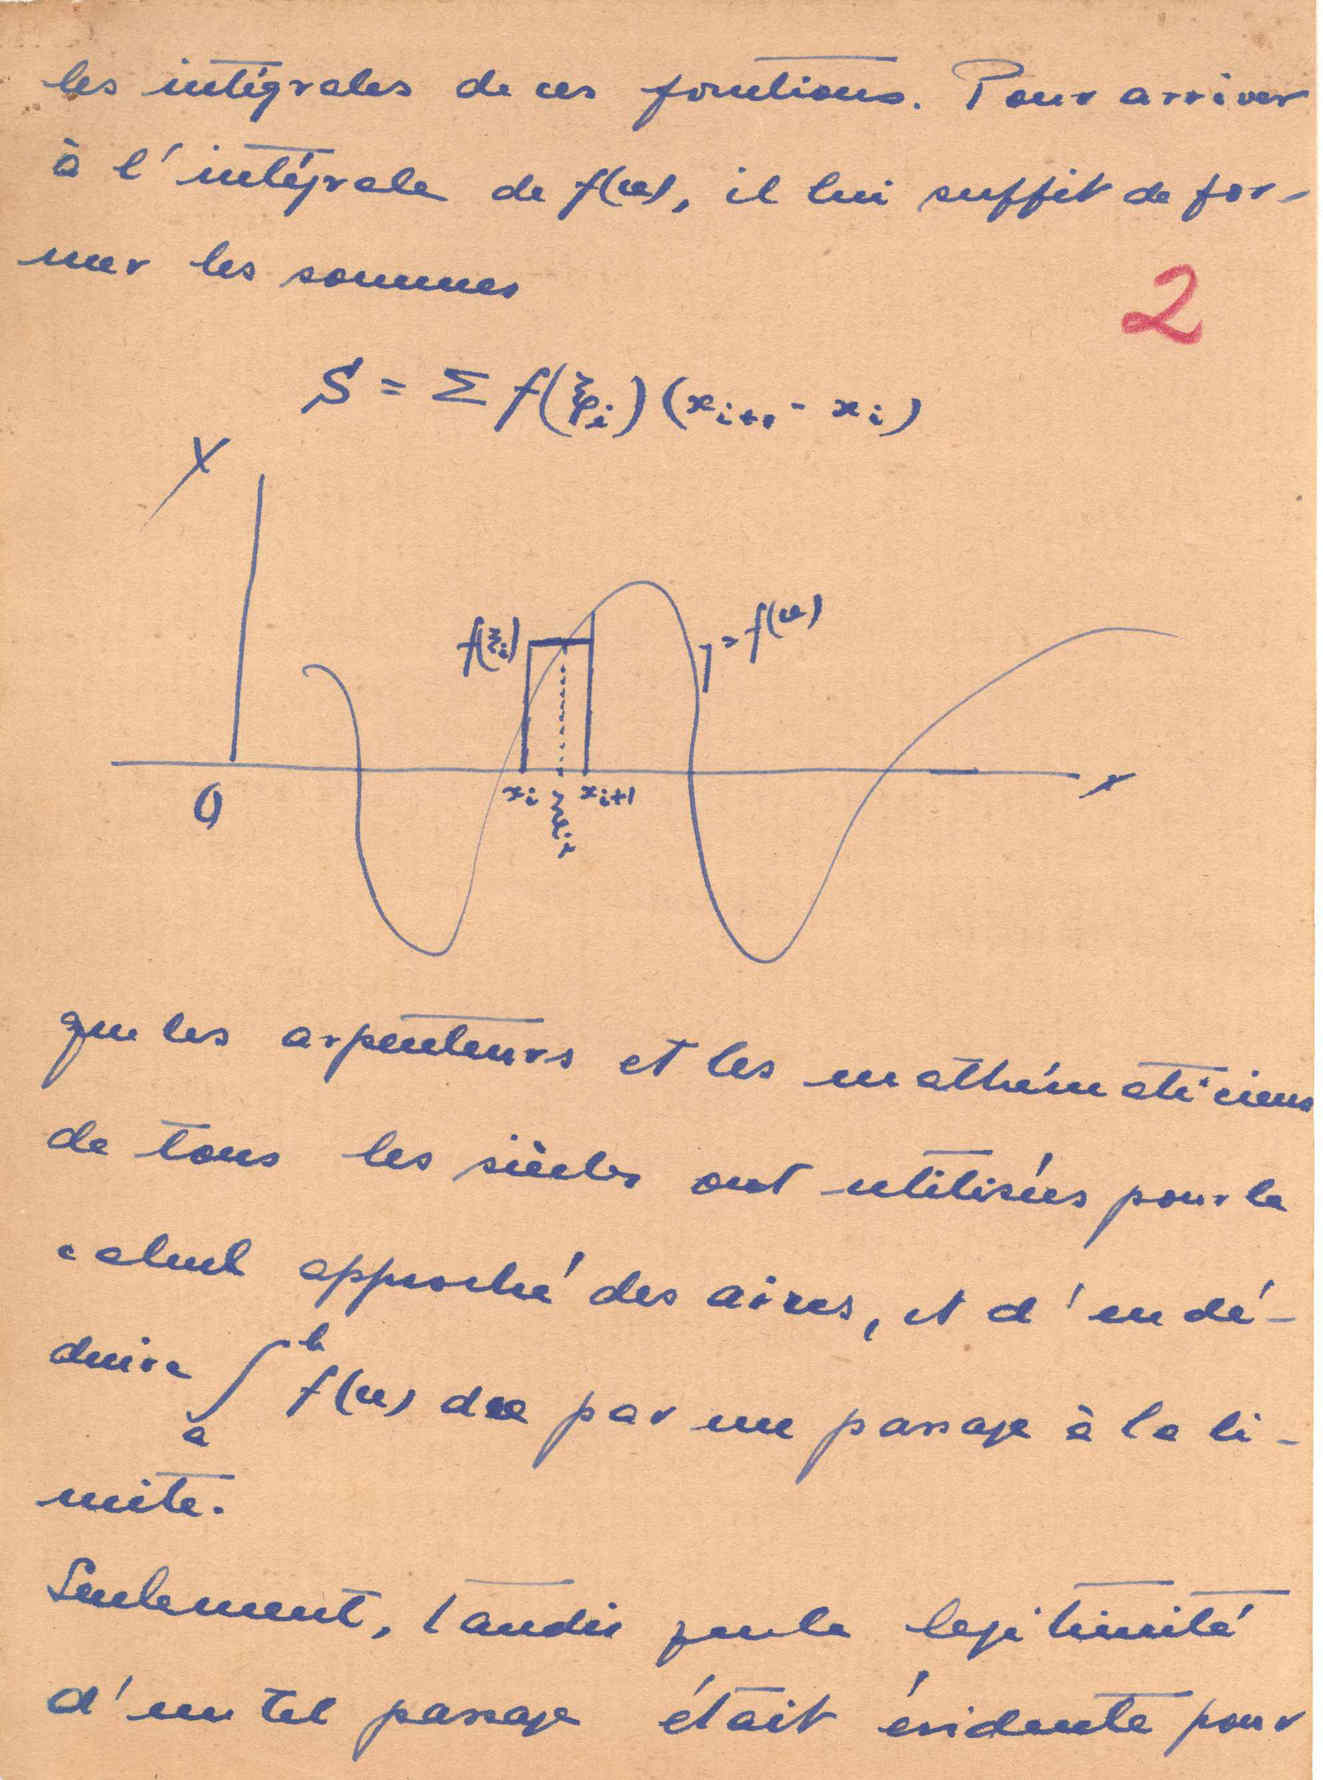 les intégrales de ces fonctions. Pour arriver
à l'intégrale de f(x), il lui suffit de for-
mer les sommes
2
S = Σ f(ξi) (xi+1 - xi)
Y
f(ξi)
= f(x)
O
xi
ξi
xi+1
x
que les arpenteurs et les mathématiciens
de tous les siècles ont utilisées pour le
calcul approché des aires, et d'en dé-
duire ∫ab f(x) dx par un passage à la li-
mite.
Seulement, tandis que la legitimité
d'un tel passage était évidente pour